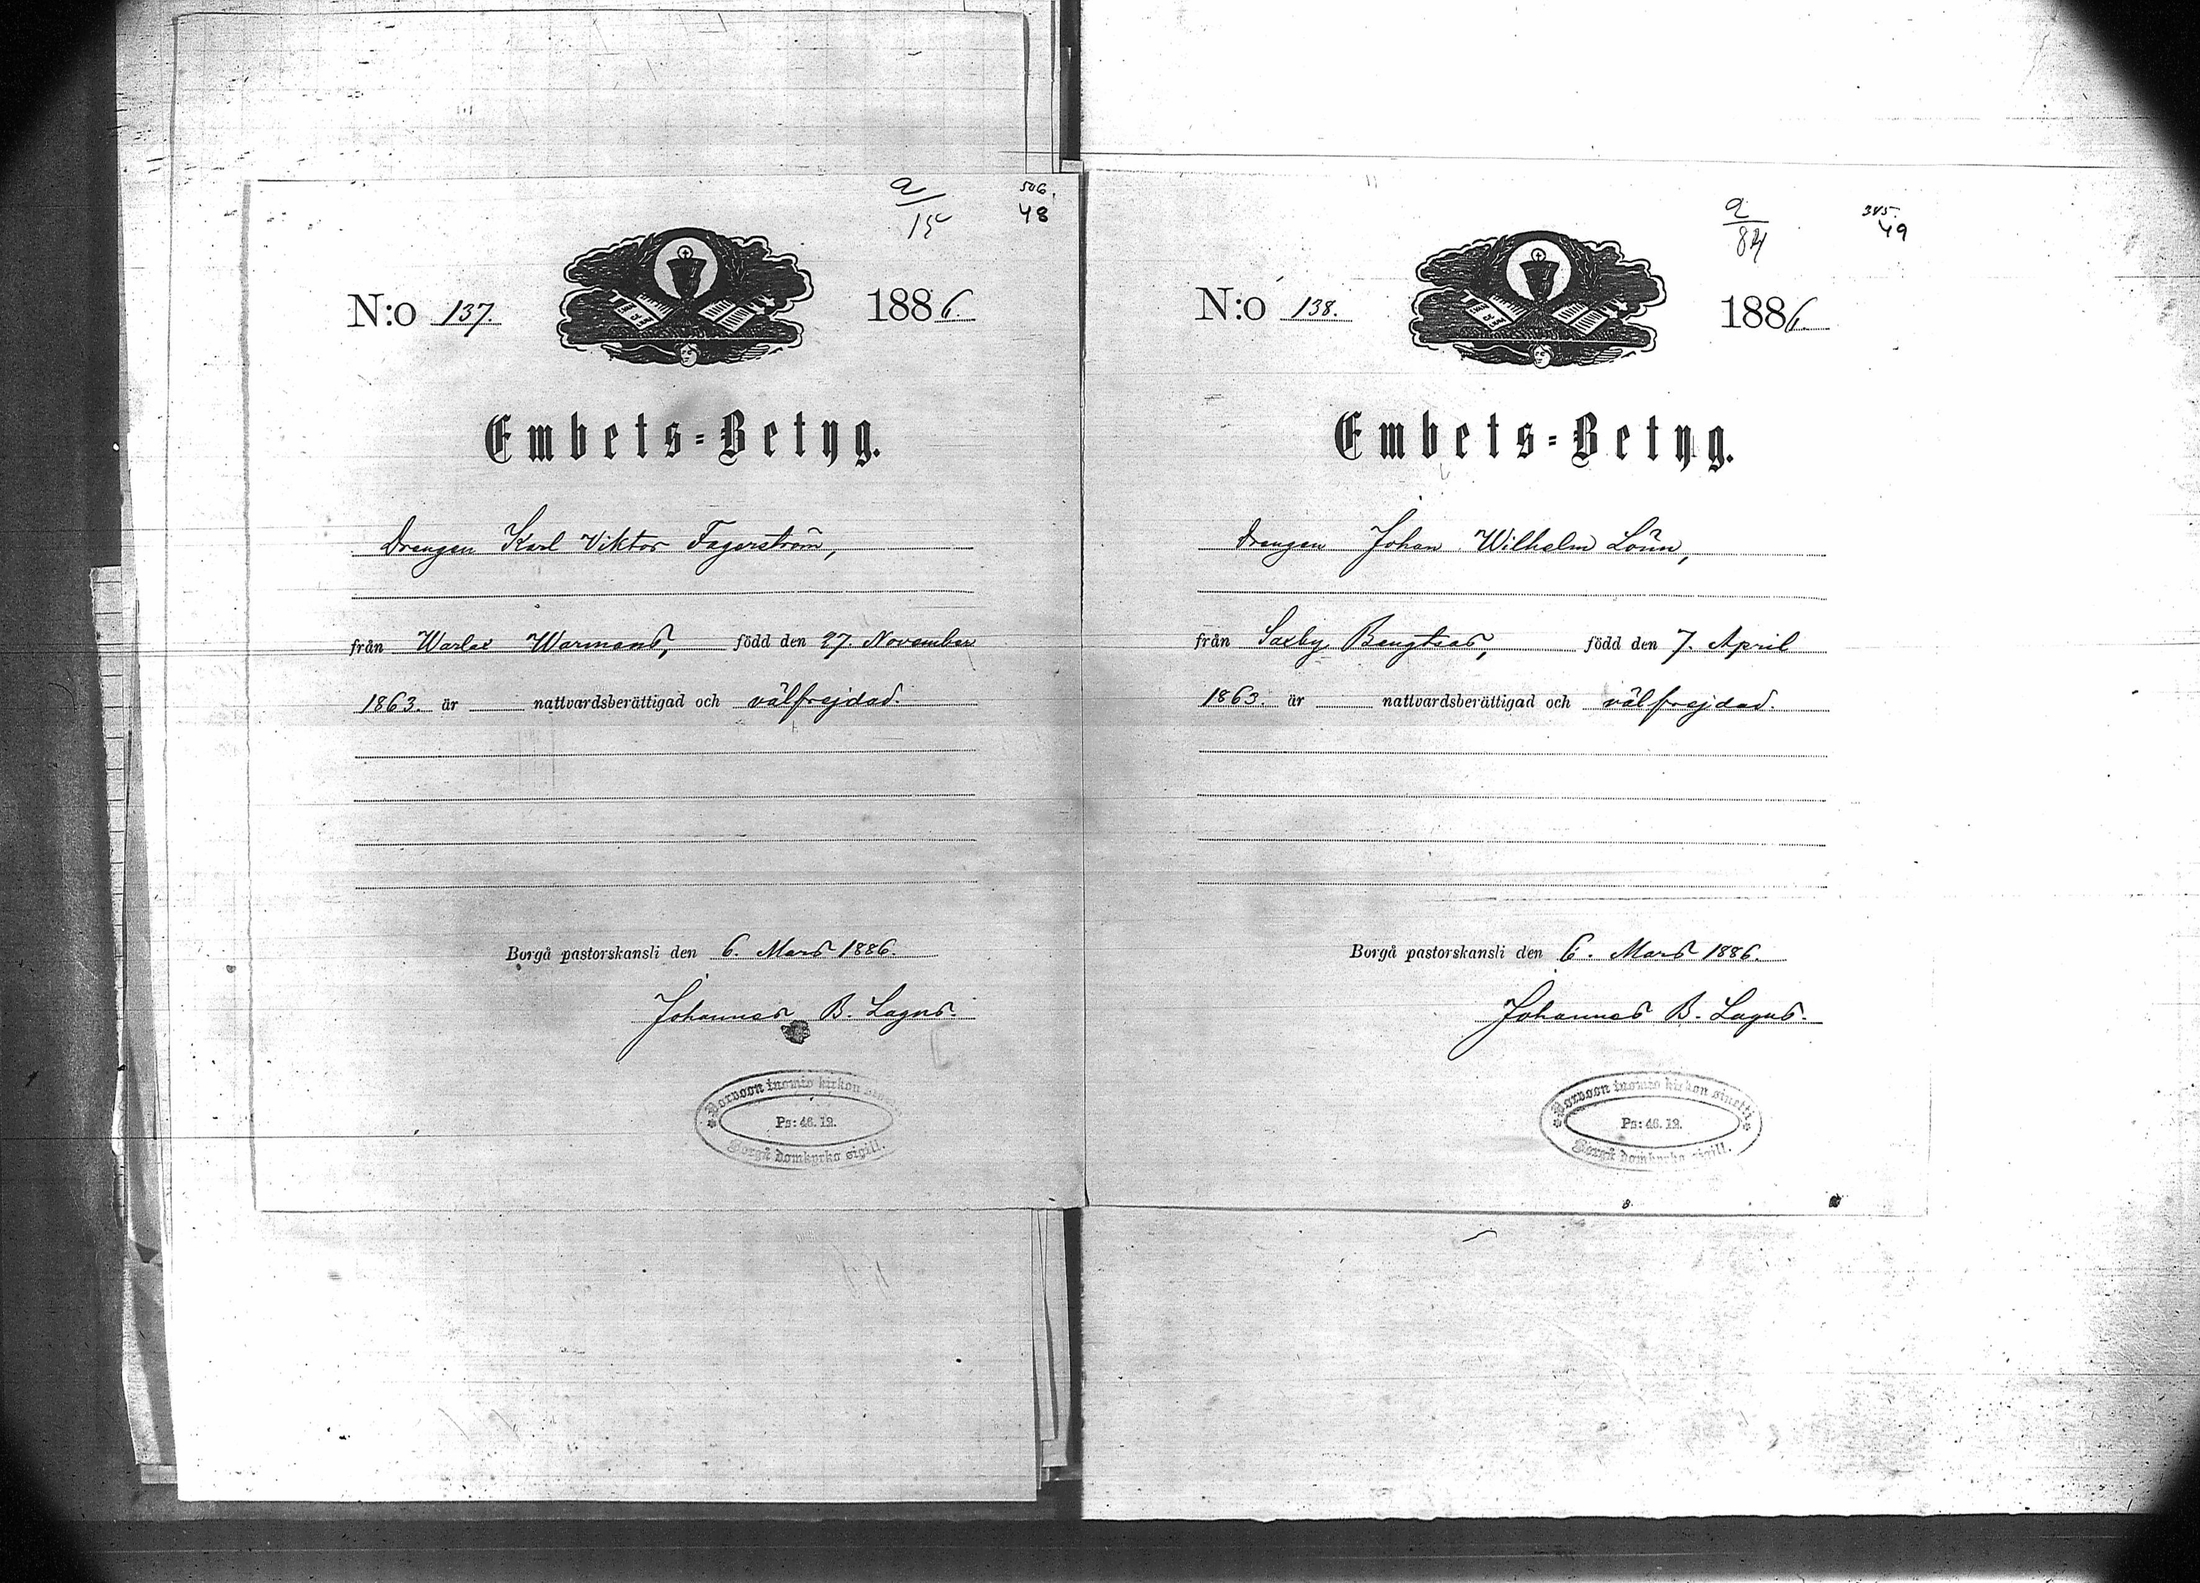 a
15
506.
48
N:o 137.
1886.
Embets=Betyg.
Drengen Karl Viktor Fagerström,
från Warlax Warmans, född den 27. November
1863. är nattvardsberättigad och välfrejdad.
Borgå pastorskansli den 6. Mars 1886.
Johannes B. Lagus.
Porvoon tuomio kirkon
Ps: 46. 12.
Borgå domkyrko sigill.
a
84
345.
49
N:o 138.
1886.
Embets=Betyg.
Drengen Johan Wilhelm Lönn,
från Saxby Bengtsas, född den 7. April
1863. är nattvardsberättigad och välfrejdad.
Borgå pastorskansli den 6. Mars 1886.
Johannes B. Lagus.
Porvoon tuomio kirkon sinetti
Ps: 46. 12.
Borgå domkyrko sigill.